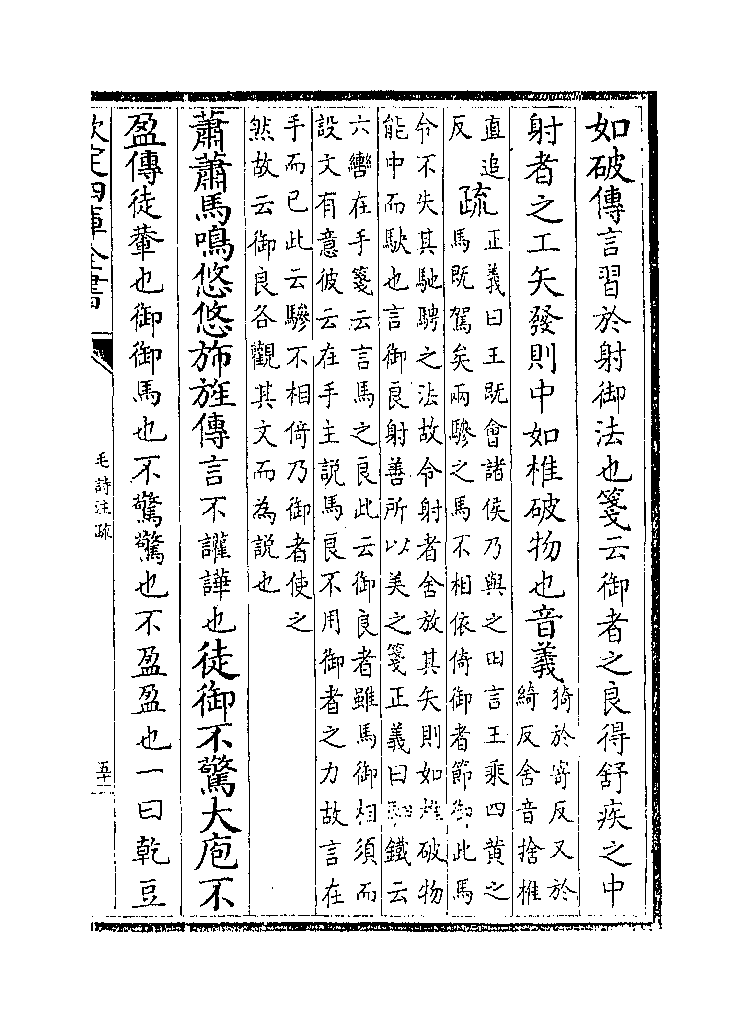 如破傳言習於射御法也箋云御者之良得舒疾之中
射者之工矢發則中如椎破物也音義
猗於寄反又於
綺反舍音捨椎
直追
反
疏
正義曰王既會諸侯乃與之田言王乘四黄之
馬既駕矣兩驂之馬不相依倚御者節御此馬
令不失其馳騁之法故令射者舍放其矢則如椎破物
能中而駃也言御良射善所以美之箋正義曰駟鐵云
六轡在手箋云言馬之良此云御良者雖馬御相須而
設文有意彼云在手主說馬良不用御者之力故言在
手而已此云驂不相倚乃御者使之
然故云御良各觀其文而為說也
蕭蕭馬鳴悠悠斾旌傳言不讙譁也徒御不驚大庖不
盈傳徒輦也御御馬也不驚驚也不盈盈也一曰乾豆
欽定四庫全書
毛詩注疏
五十